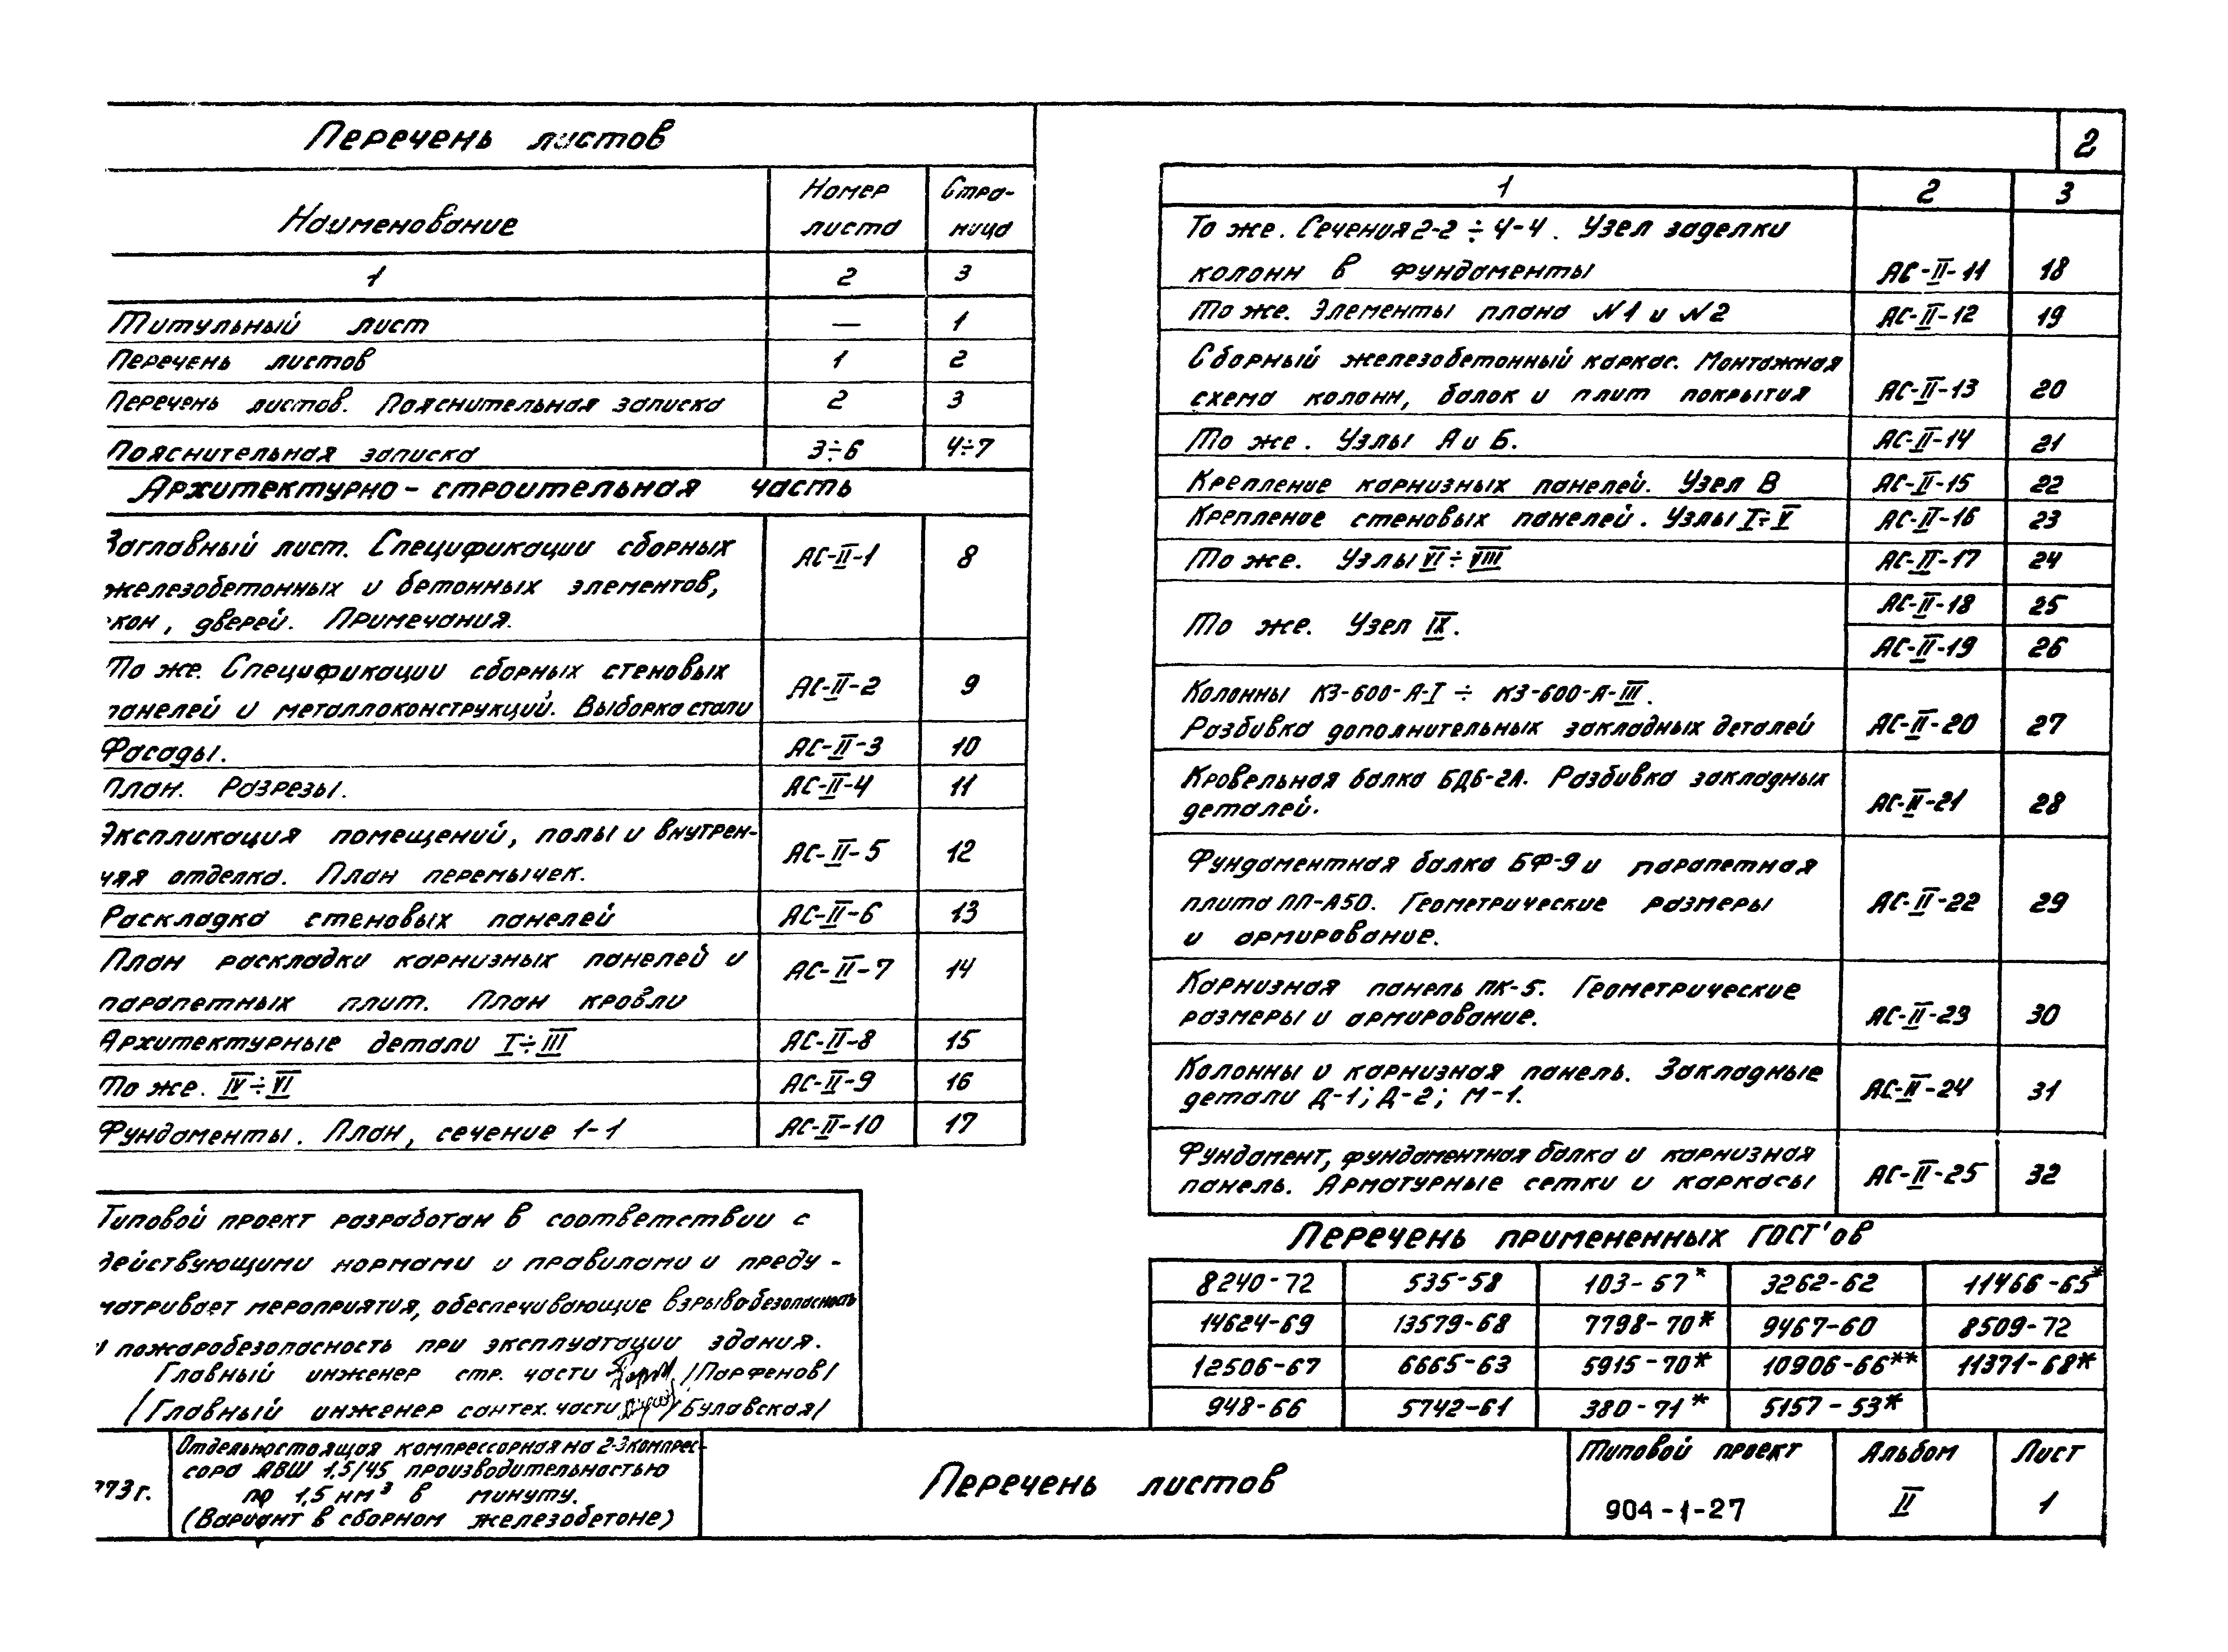 Перечень листов
Наименование Номер листа Стра-ница
1 2 3
Титульный лист — 1
Перечень листов 1 2
Перечень листов. Пояснительная записка 2 3
Пояснительная записка 3÷6 4÷7
Архитектурно-строительная часть
Заглавный лист. Спецификации сборных АС-II-1 8
железобетонных и бетонных элементов,
окон, дверей. Примечания.
То же. Спецификации сборных стеновых АС-II-2 9
панелей и металлоконструкций. Выборка стали
Фасады. АС-II-3 10
План. Разрезы. АС-II-4 11
Экспликация помещений, полы и внутрен- АС-II-5 12
няя отделка. План перемычек.
Раскладка стеновых панелей АС-II-6 13
План раскладки карнизных панелей и АС-II-7 14
парапетных плит. План кровли
Архитектурные детали I÷III АС-II-8 15
То же. IV÷VI АС-II-9 16
Фундаменты. План, сечение 1-1 АС-II-10 17
Типовой проект разработан в соответствии с
действующими нормами и правилами и преду-
матривает мероприятия, обеспечивающие взрывобезопасность
и пожаробезопасность при эксплуатации здания.
Главный инженер стр. части /Парфенов/
/Главный инженер сантех. части /Булавская/
2
1 2 3
То же. Сечения 2-2÷4-4. Узел заделки
колонн в фундаменты АС-II-11 18
То же. Элементы плана N1 и N2 АС-II-12 19
Сборный железобетонный каркас. Монтажная
схема колонн, балок и плит покрытия АС-II-13 20
То же. Узлы А и Б. АС-II-14 21
Крепление карнизных панелей. Узел В АС-II-15 22
Крепление стеновых панелей. Узлы I÷V АС-II-16 23
То же. Узлы VI÷VIII АС-II-17 24
То же. Узел IX. АС-II-18 25
АС-II-19 26
Колонны КЗ-600-А-I ÷ КЗ-600-А-III.
Разбивка дополнительных закладных деталей АС-II-20 27
Кровельная балка БДБ-2А. Разбивка закладных
деталей. АС-II-21 28
Фундаментная балка БФ-9 и парапетная
плита ПП-А50. Геометрические размеры АС-II-22 29
и армирование.
Карнизная панель ПК-5. Геометрические
размеры и армирование. АС-II-23 30
Колонны и карнизная панель. Закладные
детали Д-1; Д-2; М-1. АС-II-24 31
Фундамент, фундаментная балка и карнизная
панель. Арматурные сетки и каркасы АС-II-25 32
Перечень примененных ГОСТ'ов
8240-72 535-58 103-57* 3262-62 11466-65*
14624-69 13579-68 7798-70* 9467-60 8509-72
12506-67 6665-63 5915-70* 10906-66** 11371-68*
948-66 5742-61 380-71* 5157-53*
973г.
Отдельностоящая компрессорная на 2-3 компрес-
сора АВШ 1,5/45 производительностью
по 1,5 нм³ в минуту.
(Вариант в сборном железобетоне)
Перечень листов
Типовой проект Альбом Лист
904-1-27 II 1